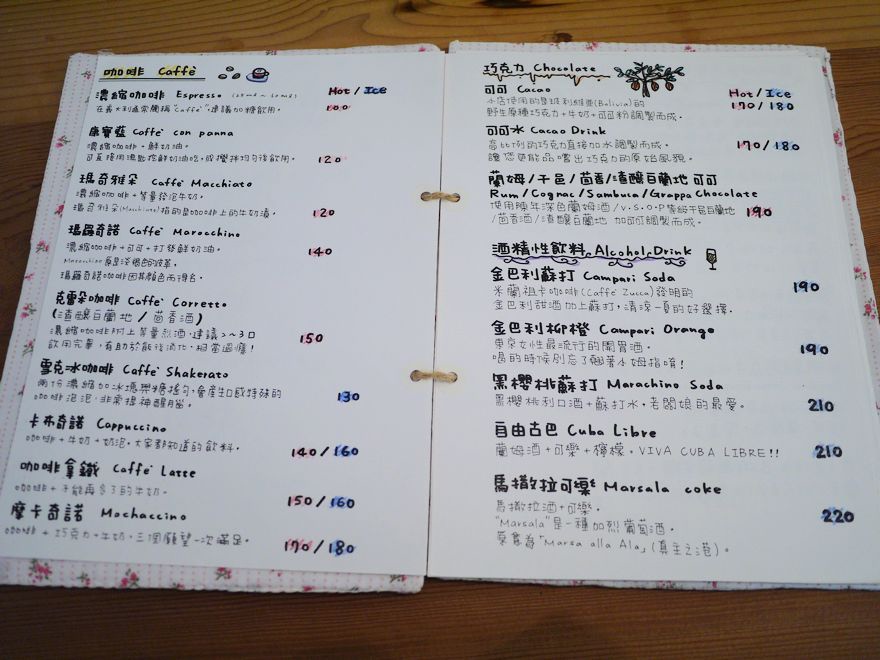 咖啡 Caffè
濃縮咖啡 Espresso Hot / Ice
在義大利通常簡稱"Caffè",建議加糖飲用。 100
康寶藍 Caffè con panna
濃縮咖啡+鮮奶油。
可直接用湯匙挖鮮奶油吃,或攪拌均勻後飲用。 120
瑪奇雅朵 Caffè Macchiato
濃縮咖啡+等量發泡牛奶。
瑪奇雅朵(Macchiato)指的是咖啡上的牛奶漬。 120
瑪羅奇諾 Caffè Marocchino
濃縮咖啡+可可+打發鮮奶油。 140
Marocchino原是淡褐色的皮革。
瑪羅奇諾咖啡因其顏色而得名。
克雷朵咖啡 Caffè Corretto
(渣釀白蘭地 / 茴香酒)
濃縮咖啡附上等量烈酒,建議2~3口 150
飲用完畢,有助於飯後消化,相當過癮!
雪克冰咖啡 Caffè Shakerato
兩份濃縮加冰塊與糖搖勻,會產生口感特殊的 130
咖啡泡泡,非常提神醒腦。
卡布奇諾 Cappuccino
咖啡+牛奶+奶泡,大家都知道的飲料。 140 / 160
咖啡拿鐵 Caffè Latte
咖啡+不能再多了的牛奶。 150 / 160
摩卡奇諾 Mochaccino
咖啡+巧克力+牛奶,三個願望一次滿足。 170 / 180
巧克力 Chocolate
可可 Cacao Hot / Ice
本店使用的是玻利維亞(Bolivia)的 170 / 180
野生原種巧克力+牛奶+可可粉調製而成。
可可水 Cacao Drink
高比例的巧克力直接加水調製而成。 170 / 180
讓您更能品嚐出巧克力的原始風貌。
蘭姆/干邑/茴香/渣釀白蘭地 可可
Rum / Cognac / Sambuca / Grappa Chocolate
使用陳年深色蘭姆酒/V.S.O.P等級干邑白蘭地 190
/茴香酒/渣釀白蘭地 加可可調製而成。
酒精性飲料 Alcohol Drink
金巴利蘇打 Campari Soda
米蘭祖卡咖啡(Caffè Zucca)發明的 190
金巴利甜酒加上蘇打,清涼一夏的好選擇。
金巴利柳橙 Campari Orange
東京女性最流行的開胃酒。 190
喝的時候別忘了翹著小姆指唷!
黑櫻桃蘇打 Marachino Soda
黑櫻桃利口酒+蘇打水,老闆娘的最愛。 210
自由古巴 Cuba Libre
蘭姆酒+可樂+檸檬。VIVA CUBA LIBRE!! 210
馬撒拉可樂 Marsala coke
馬撒拉酒+可樂。 220
"Marsala"是一種加烈葡萄酒。
原意為「Marsa alla Ala」(真主之港)。